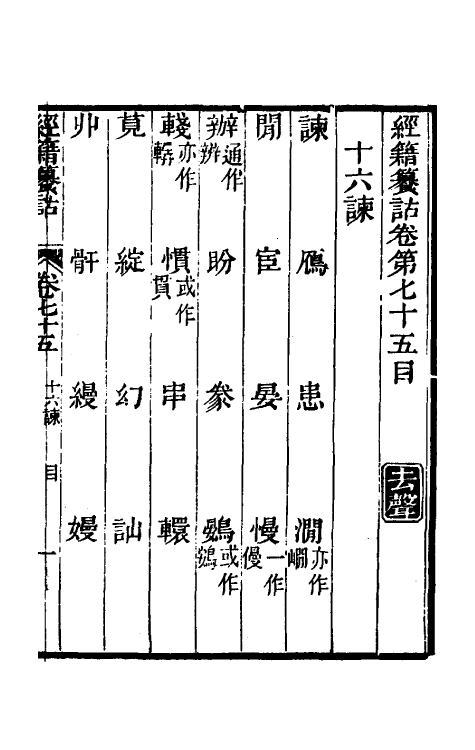 經籍籑詁卷第七十五目 去聲
十六諫
諫 鴈 患 澗亦作㵎
閒 宦 晏 慢一作僈
辦通作辨 盼 豢 鷃或作鴳
輚亦作轏 慣或作貫 串 轘
莧 綻 幻 訕
丱 骭 縵 嫚
經籍籑詁 卷七十五 十六諫 目 一